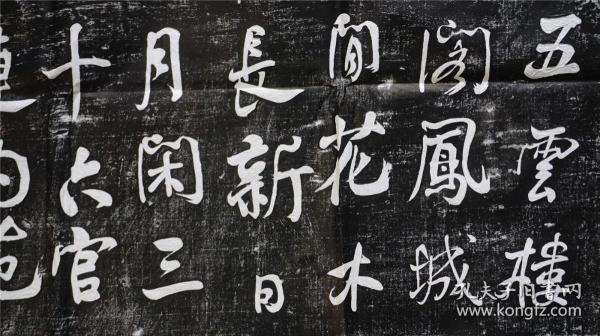 五雲樓
閣鳳城
間花木
長新日
月閑三
十六宮
連內苑
孔夫子旧书网
www.kongfz.com